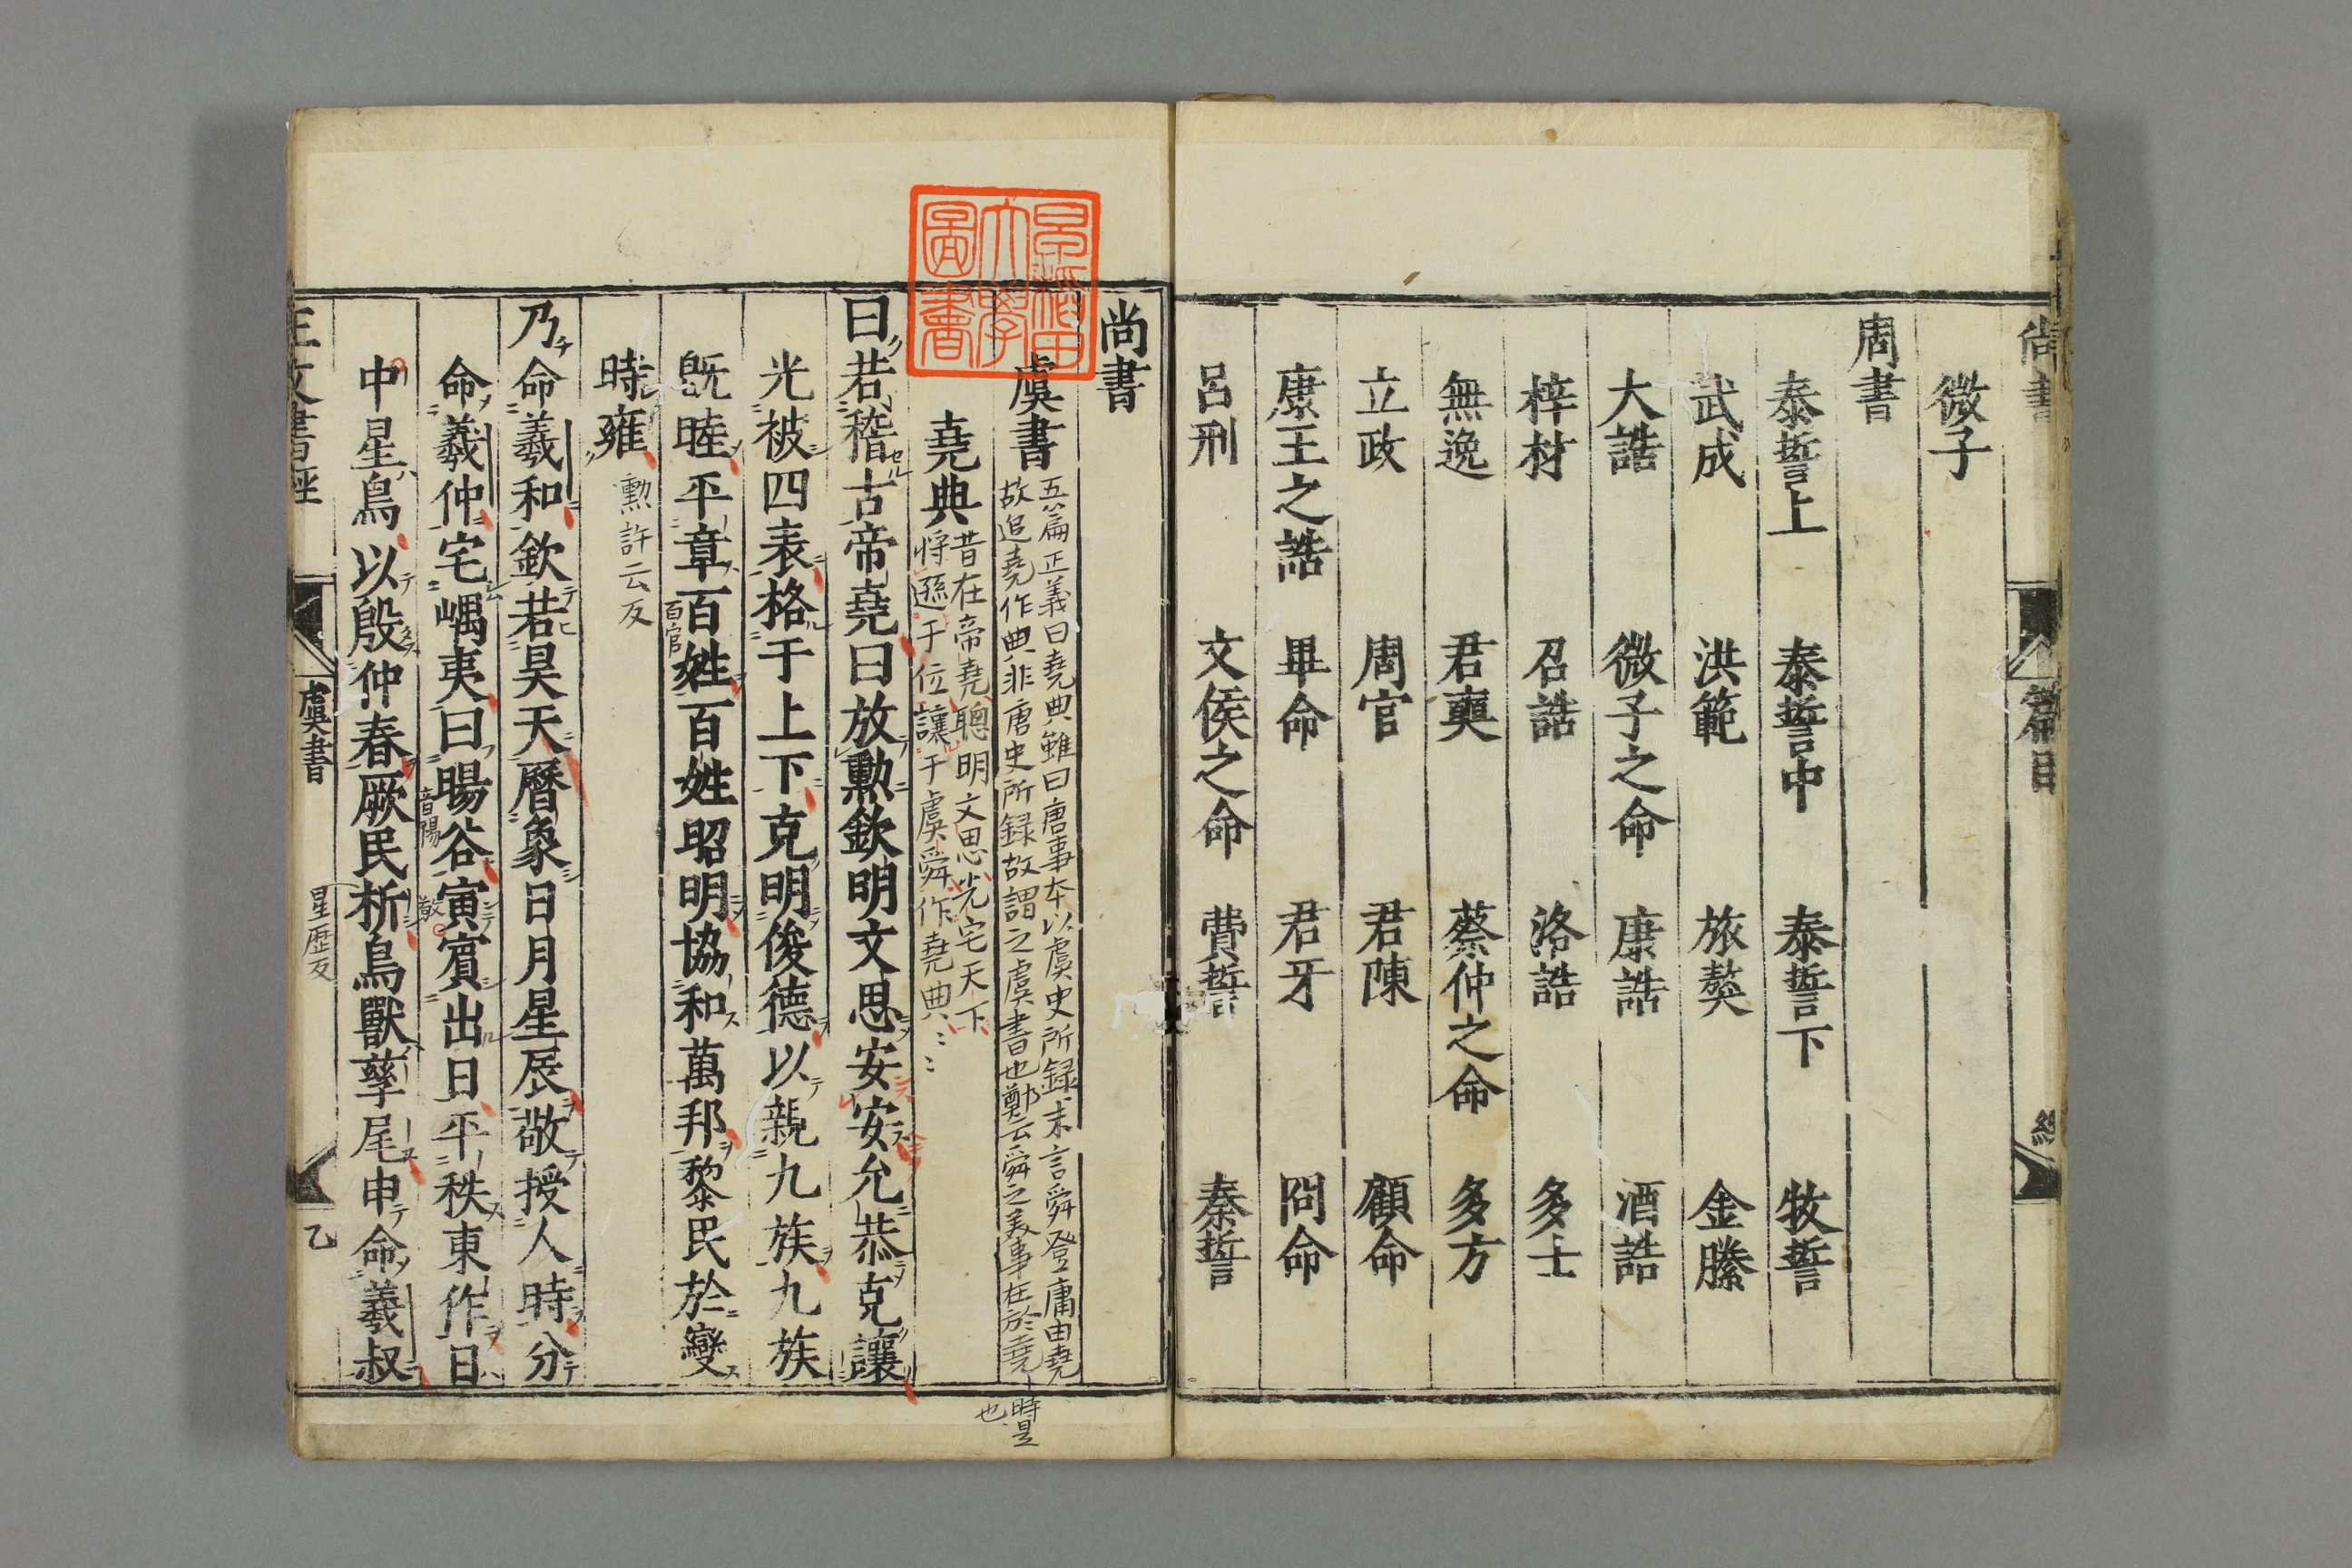 尚書
篇目
終
微子
周書
泰誓上 泰誓中 泰誓下 牧誓
武成 洪範 旅獒 金縢
大誥 微子之命 康誥 酒誥
梓材 召誥 洛誥 多士
無逸 君奭 蔡仲之命 多方
立政 周官 君陳 顧命
康王之誥 畢命 君牙 冏命
呂刑 文侯之命 費誓 秦誓
早稲田
大學
圖書
尚書
虞書
五篇正義曰堯典雖曰唐事本以虞史所録末言舜登庸由堯
故追堯作典非唐史所録故謂之虞書也鄭云舜之美事在於堯
時是
也
堯典
昔在帝堯聰明文思光宅天下
将遜于位讓于虞舜作堯典
曰若稽古帝堯曰放勲欽明文思安安允恭克讓
光被四表格于上下克明俊德以親九族九族
既睦平章百姓百姓昭明協和萬邦黎民於變
百官
時雍
勲許云反
乃命羲和欽若昊天曆象日月星辰敬授人時分
命羲仲宅嵎夷曰暘谷寅賓出日平秩東作日
音陽
敬
中星鳥以殷仲春厥民析鳥獸孳尾申命羲叔
星歴反
正文書經
虞書
乙